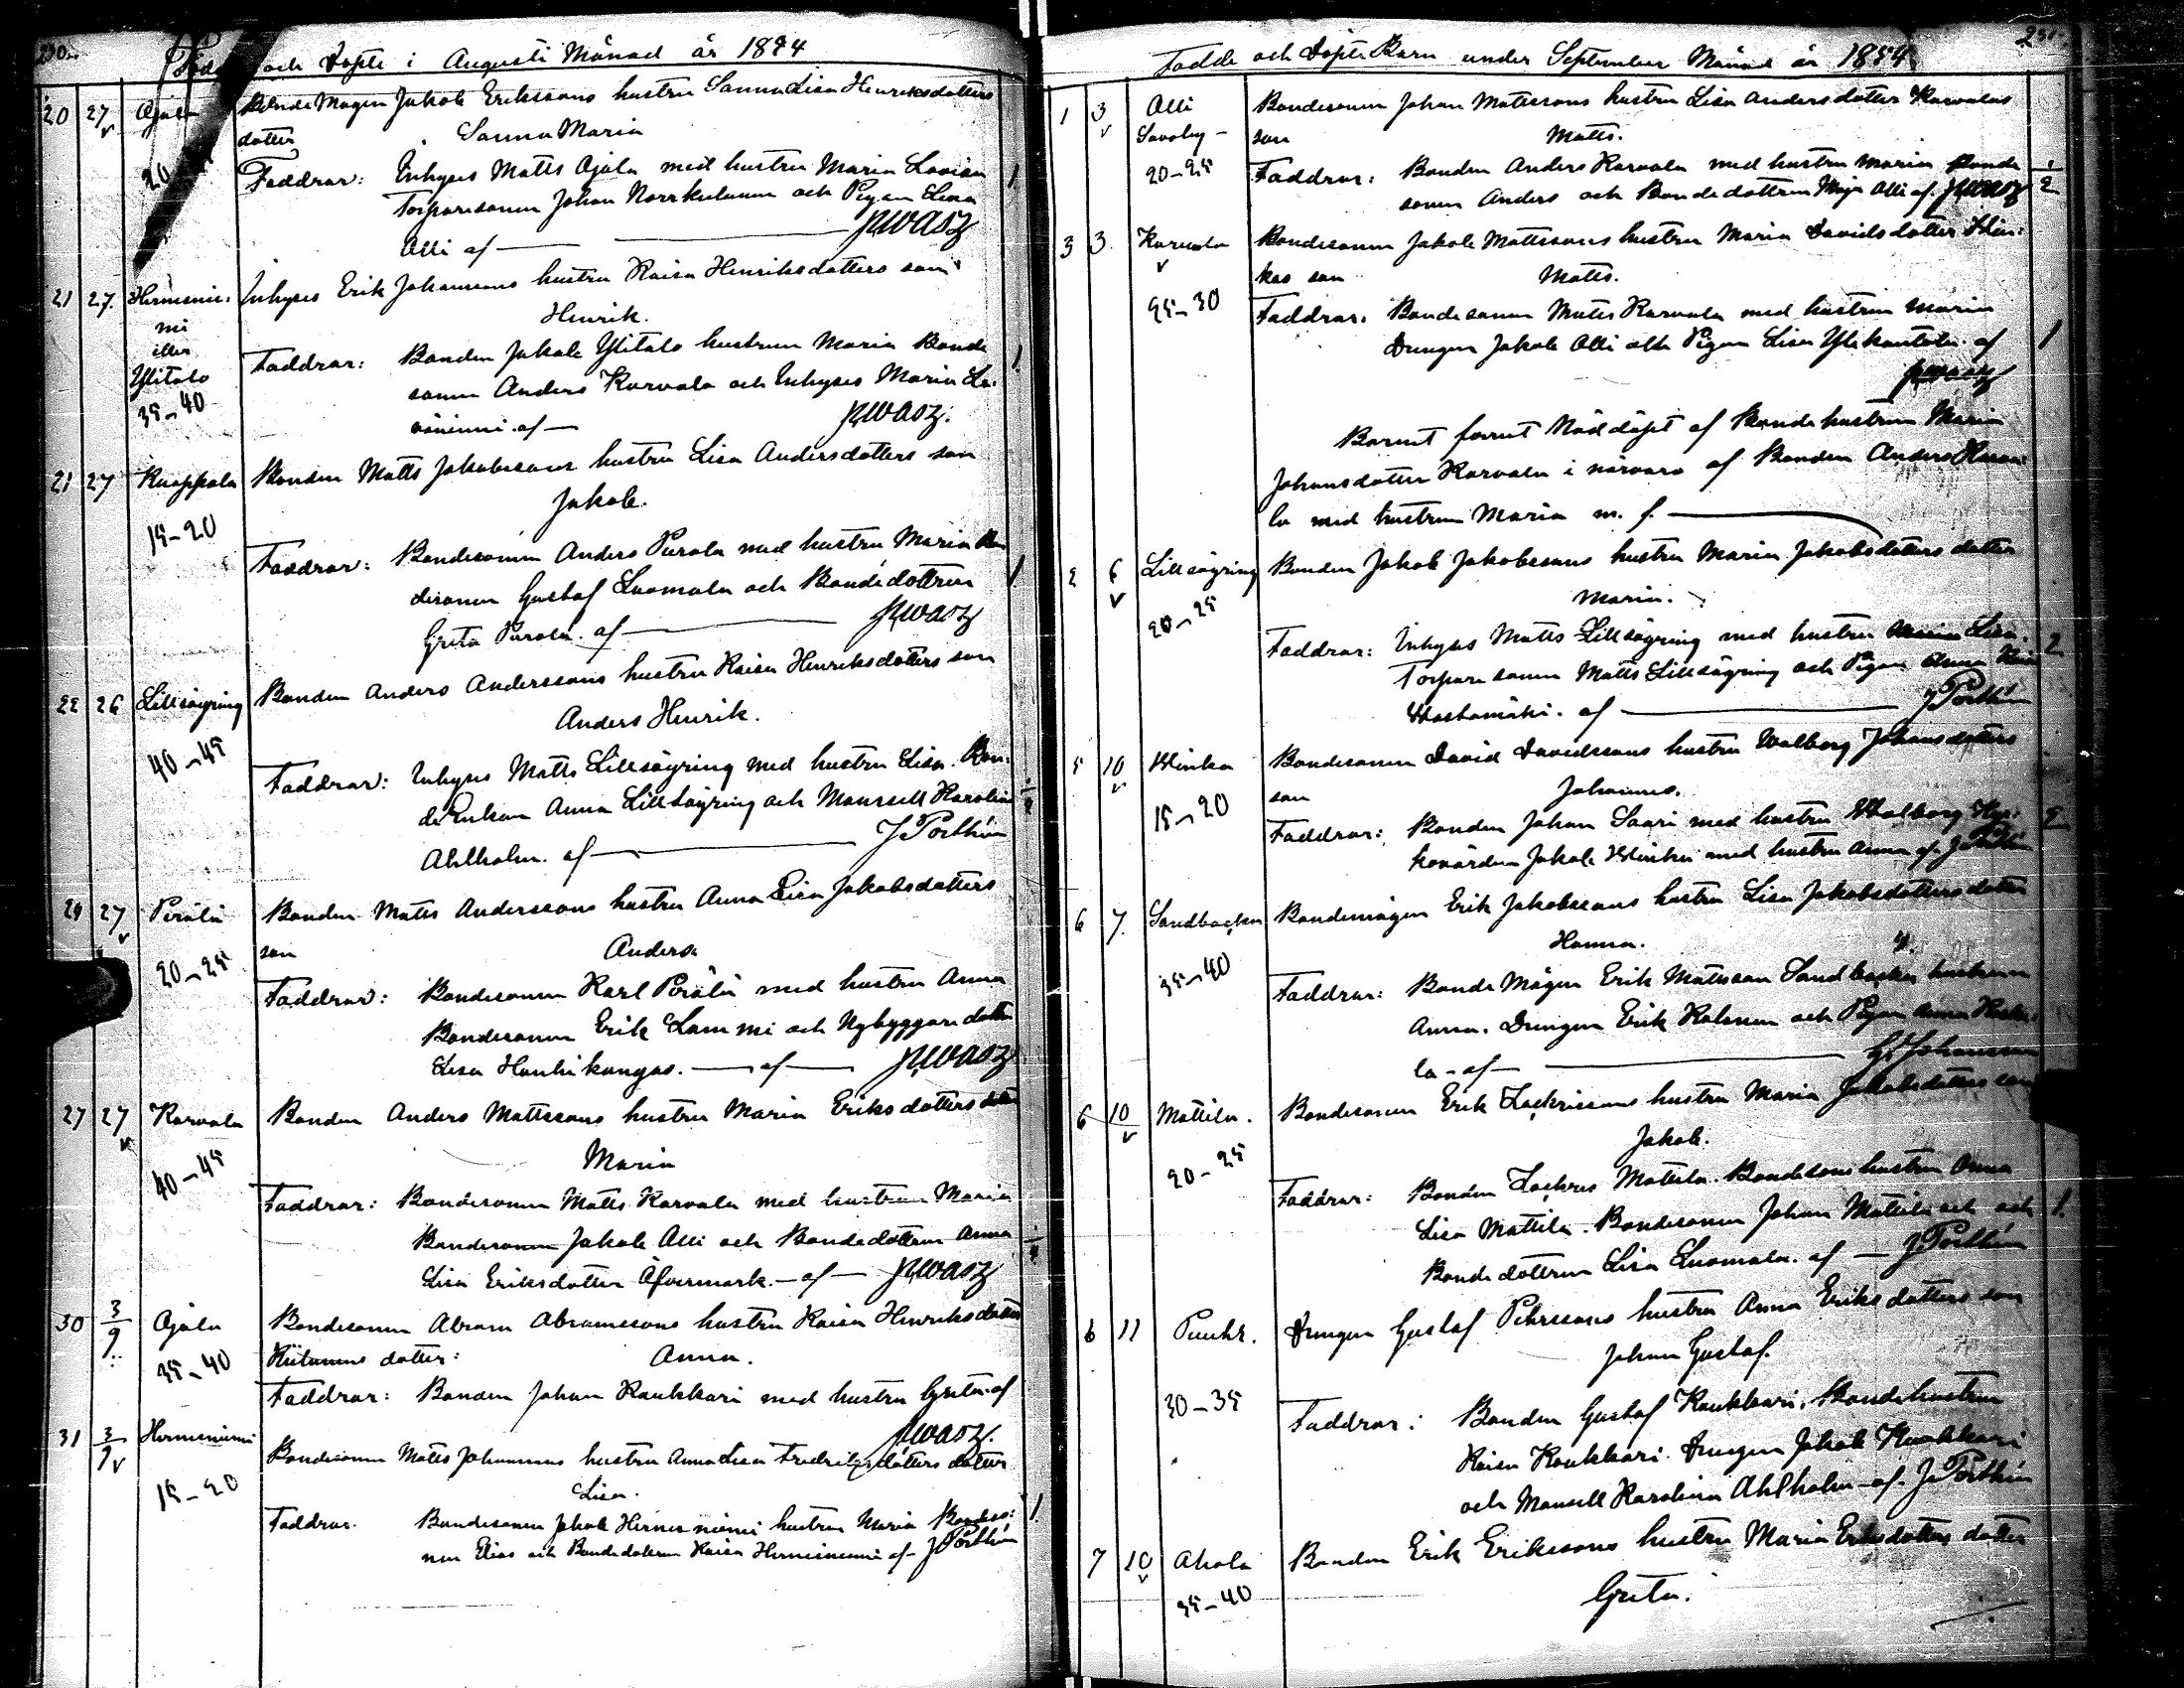 230.
Födde och döpte i Augusti Månad år 1854
20 27 Ojala Bonde Mågen Jakob Erikssons hustru Sanna Lisa Henriksdotters
dotter Sanna Maria
20 Faddrar: Inhyses Matts Ojala med hustru Maria Lovisa 1
Torparesonen Johan Norrkulunen och Pigan Lisa
Alli af JWasz
21 27. Hernesnie- Inhyses Erik Johanssons hustru Kaisa Henriksdotters son
mi Henrik.
eller
Ylitalo Faddrar: Bonden Jakob Ylitalo hustrun Maria Bonde 1
35-40 sonen Anders Karvala och Inhyses Maria
af JWasz.
21 27 Knappala Bonden Matts Jakobssons hustru Lisa Andersdotters son
Jakob.
15-20
Faddrar: Bondesonen Anders Purola med hustru Maria Bon
desonen Gustaf Luomala och Bondedottren 1
Greta Purola. af JWasz
22 26 Lillsäyring Bonden Anders Anderssons hustru Kaisa Henriksdotters son
Anders Henrik.
40-45
Faddrar: Inhyses Matts Lillsäyring med hustru Lisa. Bon-
de Enkan Anna Lillsäyring och Mamsell Karolina
Ahlholm. af J Porthén
24 27 Perälä Bonden Matts Anderssons hustru Anna Lisa Jakobsdotters
son Anders.
20-25
Faddrar: Bondesonen Karl Perälä med hustru Anna
Bondesonen Erik Lammi och Nybyggaredotter
Lisa Hanhikangas. af JWasz
27 27 Karvala Bonden Anders Mattssons hustru Maria Eriksdotters dotter
Maria
40-45
Faddrar: Bondesonen Matts Karvala med hustrun Maria
Bondesonen Jakob Alli och Bondedottren Anna
Lisa Eriksdotter Öfvermark. af JWasz
30 3/9 Ojala Bondesonen Abram Abramssons hustru Kaisa Henriksdotter
Hiitunens dotter: Anna.
35-40
Faddrar: Bonden Johan Kaukkari med hustru Greta. af
JWasz.
31 3/9 Hernesniemi Bondesonen Matts Johanssons hustru Anna Lisa Fredriksdotters dotter
15-20 Lisa.
Faddrar. Bondesonen Jakob Hernesniemi hustrun Maria Bondeso- 1.
nen Elias och Bondedottren Kaisa Hernesniemi af J Porthén
231.
Födde och döpte Barn under September Månad år 1854
1 3 Alli Bondesonen Johan Mattssons hustru Lisa Andersdotter Karvalas
Savoby- son Matts.
20-25 Faddrar: Bonden Anders Karvala med hustru Maria Bonde
sonen Anders och Bondedottren Maja Alli af JWasz
3 3. Karvala Bondesonen Jakob Mattssons hustru Maria Davidsdotter Klin-
kas son Matts.
25-30 Faddrar. Bondesonen Matts Karvala med hustrun Maria
Drengen Jakob Alli och Pigan Lisa Ylikantola. af 1
JWasz
Barnet förut Nöddöpt af Bondehustrun Maria
Johansdotter Karvala i närvaro af Bonden Anders Karva-
la med hustrun Maria m. f.
2 6 Lillsäyring Bonden Jakob Jakobssons hustru Maria Jakobsdotters dotter
Maria.
20-25
Faddrar: Inhyses Matts Lillsäyring med hustru Lisa. 2
Torparesonen Matts Lillsäyring och Pigan Anna
af J Porthén
5 10 Klinka Bondesonen David Davidssons hustru Walborg Johansdotters
son Johannes.
15-20
Faddrar: Bonden Johan Saari med hustru Walborg Kyr- 2
kovärden Jakob Klinka med hustru Anna af J Porthén
6 7. Sandbacka Bondemågen Erik Jakobssons hustru Lisa Jakobsdotters dotter
Hanna.
35-40
Faddrar: Bonde Mågen Erik Mattsson Sandbacka hustrun
Anna. Drengen Erik och Pigan Anna
la - af Johansson
6 10 Mattila. Bondesonen Erik Zachrissons hustru Maria Jakobsdotters son
Jakob.
20-25
Faddrar: Bonden Zachris Mattila. Bondesonshustrun Anna
Lisa Mattila. Bondesonen Johan Mattila och och 1.
Bondedottren Lisa Luomala. af J Porthén
6 11 Puuhr. Drengen Gustaf Pehrssons hustru Anna Eriksdotters son
Johan Gustaf.
30-35
Faddrar: Bonden Gustaf Kaukkari, Bondehustrun
Kaisa Kaukkari. Drengen Jakob Kaukkari
och Mamsell Karolina Ahlholm. af. J Porthén
7 10 Ahola Bonden Erik Erikssons hustru Maria Eriksdotters dotter
35-40 Greta.